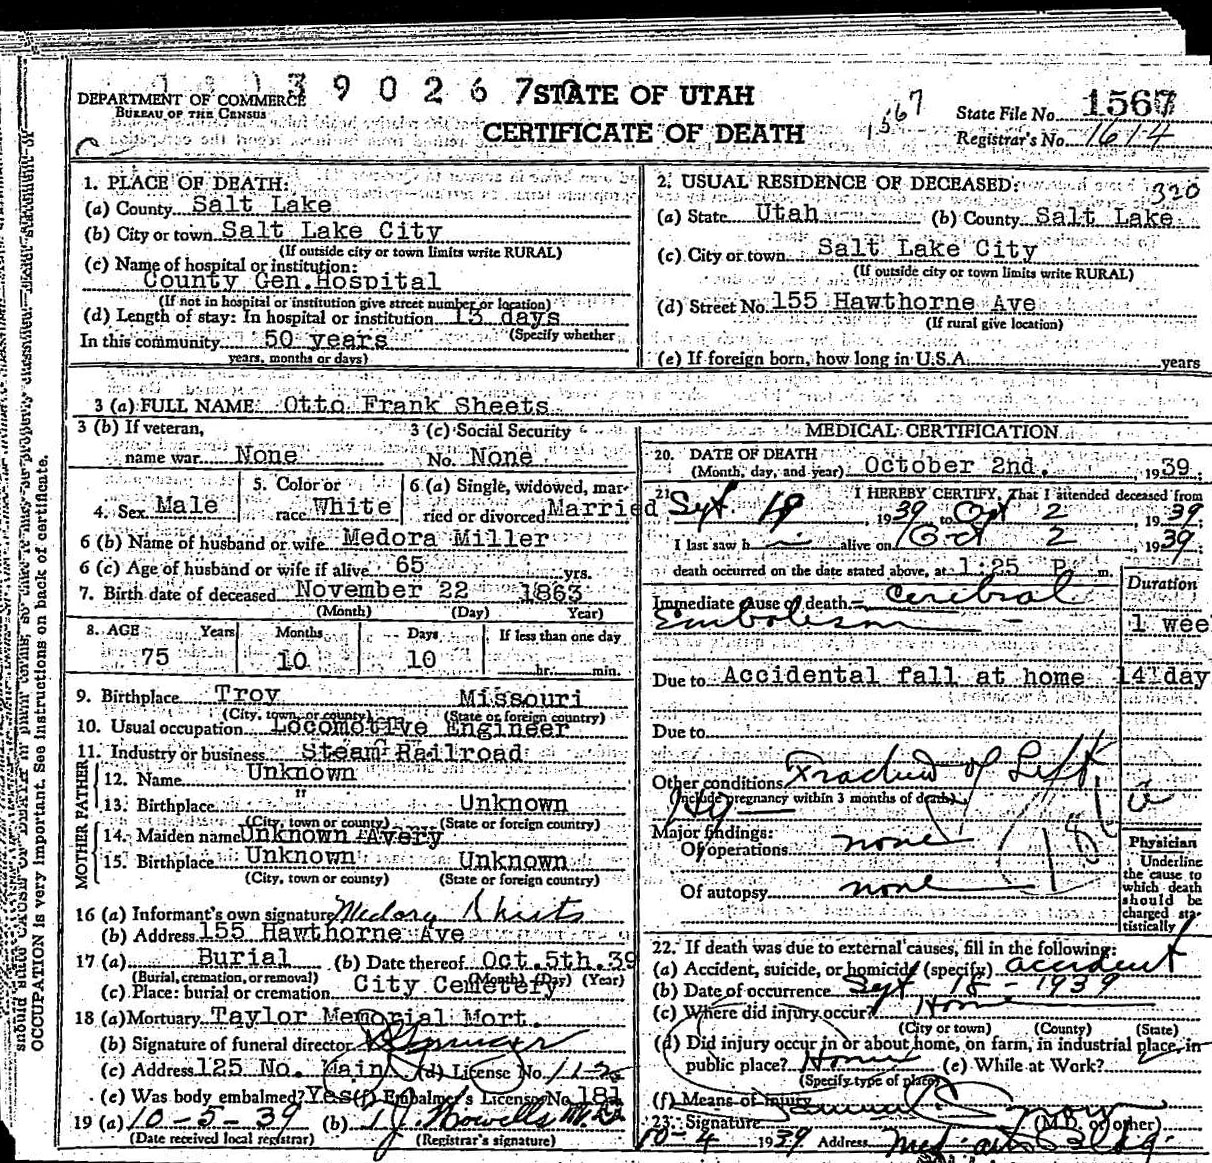 1 3 9 0 2 6 7 0
DEPARTMENT OF COMMERCE
BUREAU OF THE CENSUS
STATE OF UTAH
CERTIFICATE OF DEATH
1567
State File No. 1567
Registrar's No. 1614
1. PLACE OF DEATH:
(a) County Salt Lake
(b) City or town Salt Lake City
(If outside city or town limits write RURAL)
(c) Name of hospital or institution:
County Gen. Hospital
(If not in hospital or institution give street number or location)
(d) Length of stay: In hospital or institution 13 days
(Specify whether
In this community 50 years
years, months or days)
2. USUAL RESIDENCE OF DECEASED:
320
(a) State Utah (b) County Salt Lake
(c) City or town Salt Lake City
(If outside city or town limits write RURAL)
(d) Street No. 155 Hawthorne Ave
(If rural give location)
(e) If foreign born, how long in U.S.A. years
3 (a) FULL NAME Otto Frank Sheets
3 (b) If veteran, 3 (c) Social Security
name war None No. None
4. Sex Male
5. Color or
race White
6 (a) Single, widowed, mar-
ried or divorced Married
6 (b) Name of husband or wife Medora Miller
6 (c) Age of husband or wife if alive 65 yrs.
7. Birth date of deceased November 22 1863
(Month) (Day) Year)
8. AGE Years Months Days If less than one day
75 10 10 hr. min.
9. Birthplace Troy Missouri
(City, town, or county) (State or foreign country)
10. Usual occupation Locomotive Engineer
11. Industry or business Steam Railroad
FATHER
12. Name Unknown
13. Birthplace " Unknown
(City, town or county) (State or foreign country)
MOTHER
14. Maiden name Unknown Avery
15. Birthplace Unknown Unknown
(City, town or county) (State or foreign country)
16 (a) Informant's own signature Medora Sheets
(b) Address 155 Hawthorne Ave
17 (a) Burial (b) Date thereof Oct. 5th. 39
(Burial, cremation, or removal) (Month) (Day) (Year)
(c) Place: burial or cremation City Cemetery
18 (a) Mortuary Taylor Memorial Mort.
(b) Signature of funeral director
(c) Address 125 No. Main (d) License No.
(e) Was body embalmed? Yes (f) Embalmer's License No. 181
19 (a) 10-5-39 (b) T J. Howells M.D.
(Date received local registrar) (Registrar's signature)
MEDICAL CERTIFICATION
20. DATE OF DEATH
(Month, day, and year) October 2nd. , 1939.
21. I HEREBY CERTIFY, That I attended deceased from
Sept. 19 , 1939, to Oct 2 , 1939;
I last saw h im alive on Oct 2 , 1939;
death occurred on the date stated above, at 1:25 P. m.
Duration
Immediate cause of death Cerebral
Embolism 1 wee
Due to Accidental fall at home 14 day
Due to
Other conditions Fracture of Left
(Include pregnancy within 3 months of death)
Hip
186 a
Major findings:
Of operations none
Of autopsy none
Physician
Underline
the cause to
which death
should be
charged sta-
tistically
22. If death was due to external causes, fill in the following:
(a) Accident, suicide, or homicide (specify) accident
(b) Date of occurrence Sept 18 - 1939
(c) Where did injury occur? Home
(City or town) (County) (State)
(d) Did injury occur in or about home, on farm, in industrial place, in
public place? Home (e) While at Work?
(Specify type of place)
(f) Means of injury
23. Signature (M.D. or other)
10-4 1939 Address Med. arts Bldg.
OCCUPATION is very important. See instructions on back of certificate.